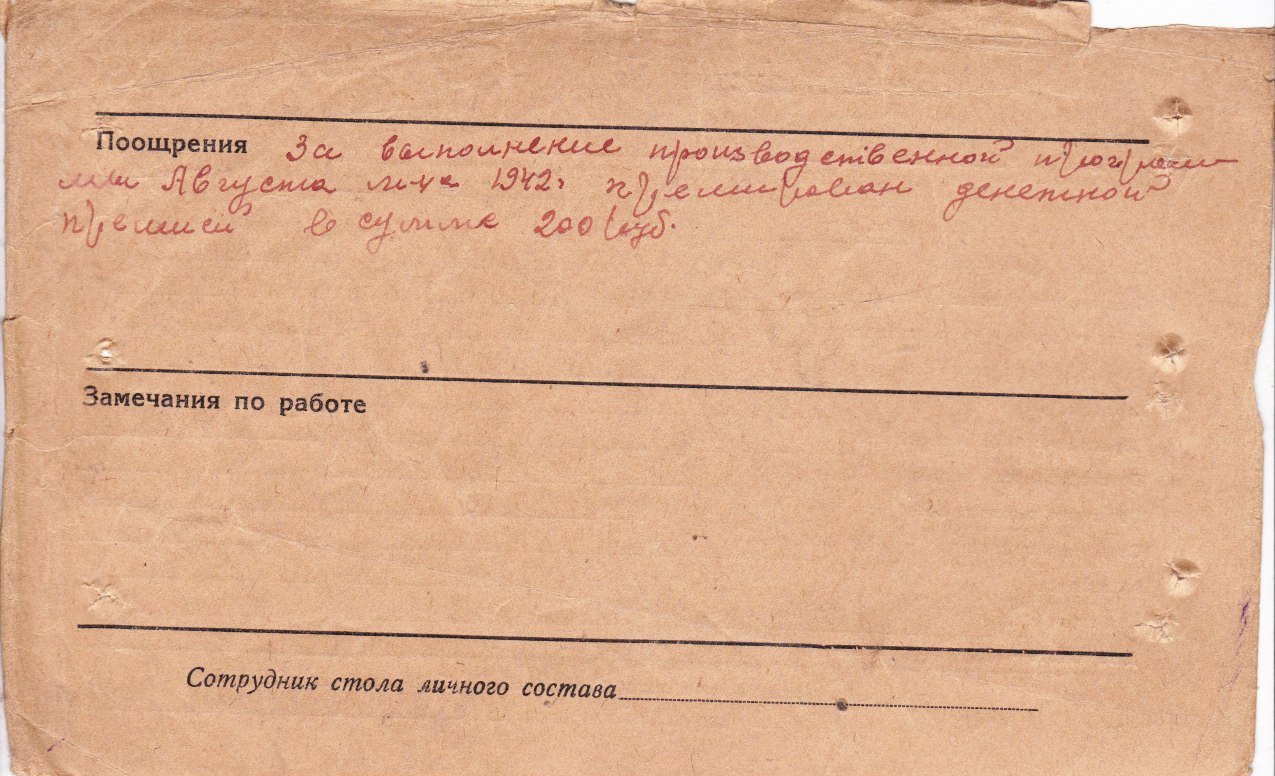 Поощрения За выполнение производственной програм-
мы Августа м-ца 1942г премирован денежной
премией в сумме 200 руб.
Замечания по работе
Сотрудник стола личного состава